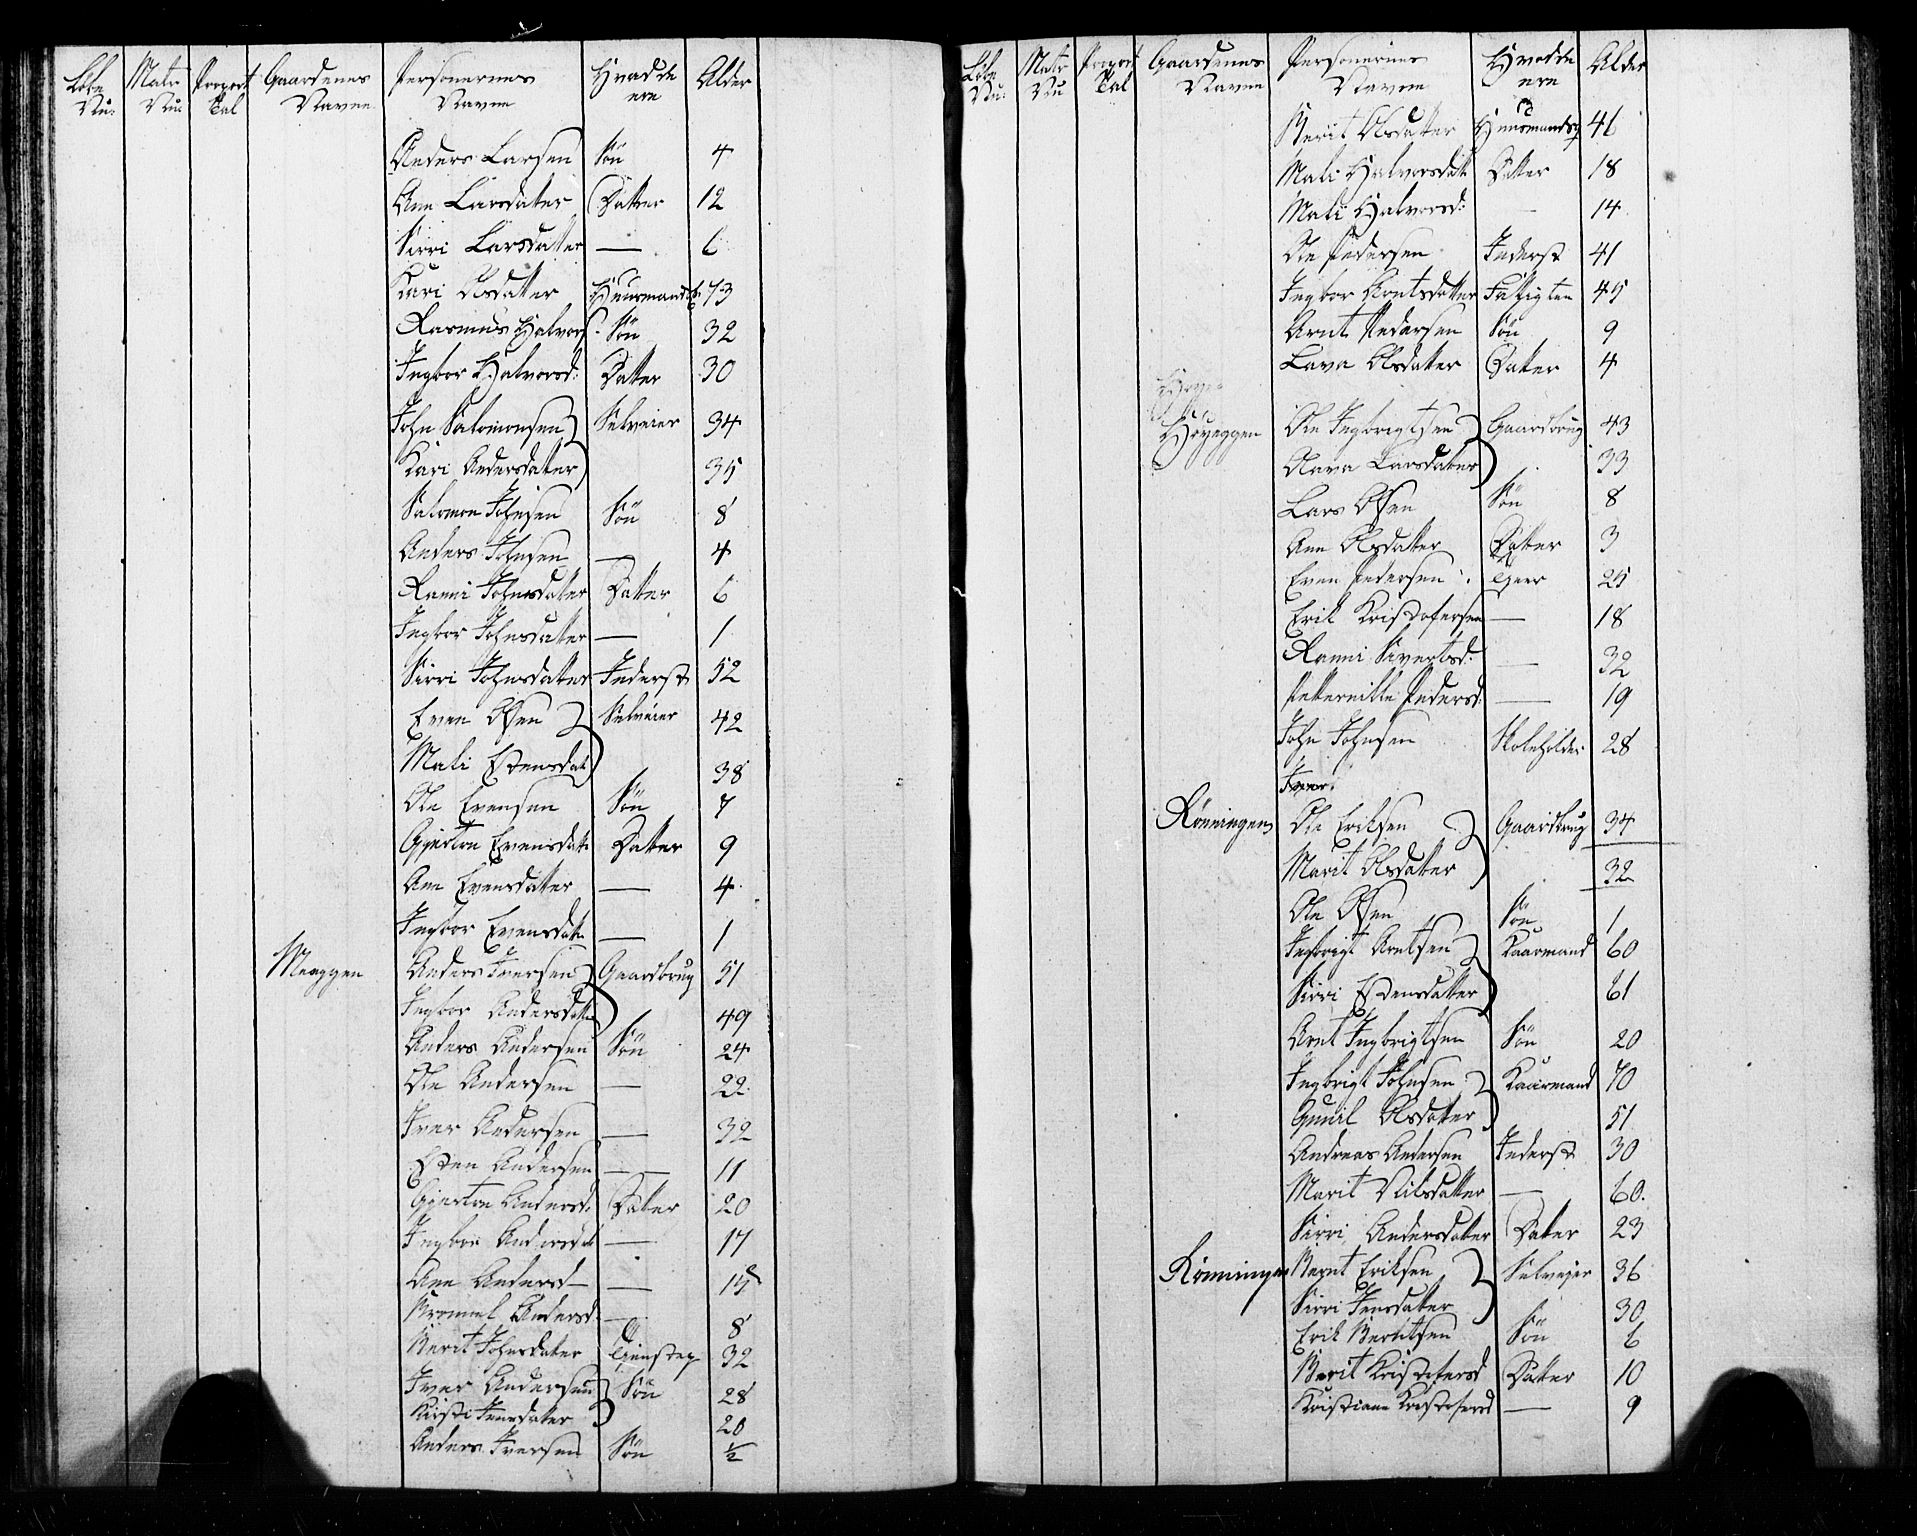 Løbe Nu: Matr Nu: Proport Tal Gaardenes Navne Personernes Navne Hvad de ere Alder
Anders Larsen Søn 4
Ane Larsdatter Datter 12
Sirri Larsdatter — 6
Kari Olsdatter Huusmandsk: 73
Rasmus Halvors: Søn 32
Ingbor Halvorsd: Datter 30
John Salomonsen Selveier 34
Kari Andersdatter 35
Salomon Johnsen Søn 8
Anders Johnsen — 4
Ranni Johnsdatter Datter 6
Ingbor Johnsdatter — 1
Sirri Johnsdatter Inderst 52
Even Olsen Selveier 42
Mali Estensdat 38
Ole Evensen Søn 7
Gjertru Evensdatt Datter 9
Ane Evensdatter — 4
Ingbor Evensdatt — 1
Meaggen Anders Iversen Gaardbrug 51
Ingbor Andersdatt 49
Anders Andersen Søn 24
Ole Andersen — 22
Iver Andersen — 32
Esten Andersen — 11
Gjertru Andersd. Datter 20
Ingbor Andersdat — 17
Ane Andersd — 15
Andersd — 8
Berit Johnsdatter 32
Iver Andersen Søn 28
Kirsti Jensdatter 20
Anders Iversen Søn ½
Løbe Nu: Matr Nu Proport Tal Gaardenes Navne Personernes Navne Hvad de ere Alder
Berit Olsdatter Huusmands 46
Mali Halvorsdatt Datter 18
Mali Halvorsd: — 14
Ole Pedersen Inderst 41
Ingbor Arntsdatter Fattigten 45
Arnt Pedersen Søn 9
Lava Olsdatter Datter 4
Høyeggen Ole Ingbrigtsen Gaardbrug 43
Olava Larsdatter 33
Lars Olsen Søn 8
Ane Olsdatter Datter 3
Even Pedersen 25
Erik Kristofersen — 18
Ranni Sivertsd: — 32
Petternille Pedersd: — 19
John Johnsen Skoleholder 28
Iver
Rønningen Ole Eriksen Gaardbrug 34
Marit Olsdatter 32
Ole Olsen Søn 1
Ingbrigt Arntsen Kaarmand 60
Sirri Estensdatter 61
Arnt Ingbrigtsen Søn 20
Ingbrigt Johnsen Kaarmand 70
Gunil Olsdatter 51
Andreas Andersen Inderst 30
Marit Nilsdatter — 60.
Sirri Andersdatter Datter 23
Rønningen Bernt Eriksen Selvejer 36
Sirri Jensdatter 30
Erik Berntsen Søn 6
Berit Kristofersd Datter 10
Kristiane Kristofersd — 9